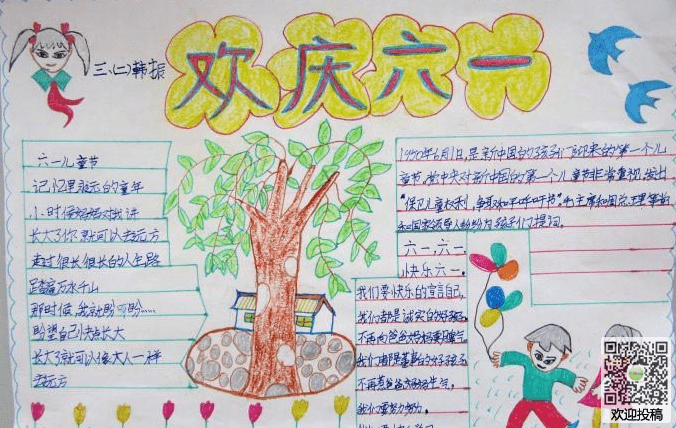 三、(二)韩振
欢庆六一
六一儿童节
记忆里永远的童年
小时候妈妈对我讲
长大了你就可以去远方
走过很长很长的人生路
踏遍万水千山
那时候我就盼啊盼……
盼望自己快快长大
长大了就可以像大人一样
去远方
1950年6月1日,是新中国的孩子们迎来的第一个儿
童节,党中央对新中国的第一个儿童节非常重视,发出
"保卫儿童权利,争取和平呼吁书"毛主席和周总理等党
和国家领导人纷纷为孩子们提词。
六一,六一,
快乐六一。
我们要快乐的宣言自己,
我们都是诚实的好孩子。
不再向爸爸妈妈耍脾气。
我们都是懂事的好孩子
不再惹爸爸妈妈生气,
我们要努力努力。
欢迎投稿